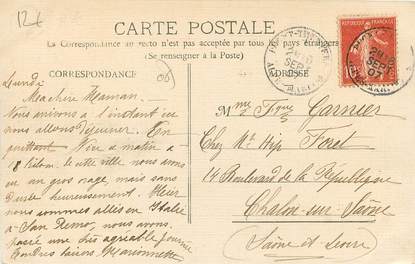 12 €
CARTE POSTALE
La Correspondance au recto n'est pas acceptée par tous les pays étrangers
(Se renseigner à la Poste)
CORRESPONDANCE
ADRESSE
RÉPUBLIQUE FRANÇAISE
10
Lundi
Ma chère Maman,
Nous arrivons à l'instant et
nous allons déjeuner. En
quittant Nice ce matin à
8 h
cette ville nous avons
eu un gros orage, mais sans
durée heureusement. Hier
nous sommes allés en Italie
à San Remo, nous avons
passé une très agréable journée
Tendres baisers. Marionnette
Mme Fque Garnier
Chez Mr Hip Foret
14 Boulevard de la République
Chalon-sur-Saône
Saône et Loire